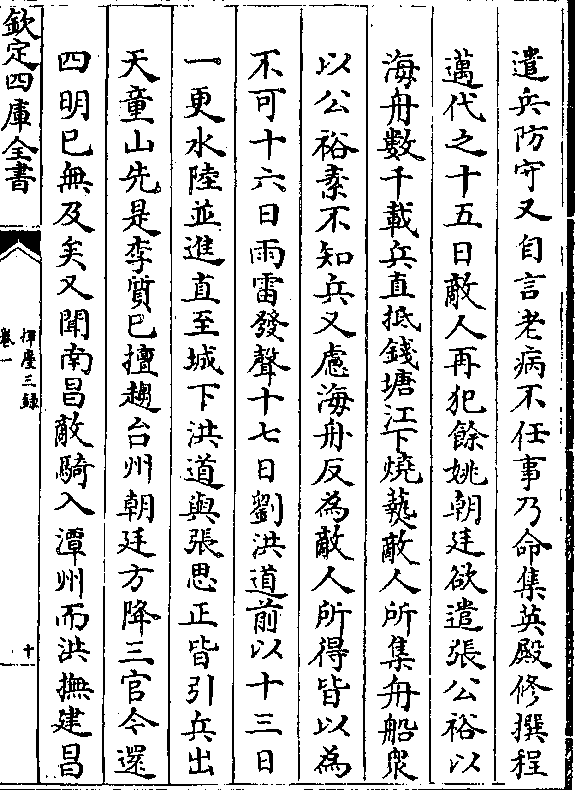 遣兵防守又自言老病不任事乃命集英殿修撰程
邁代之十五日敵人再犯餘姚朝廷欲遣張公裕以
海舟數千載兵直抵錢塘江下燒爇敵人所集舟船衆
以公裕素不知兵又慮海舟反為敵人所得皆以為
不可十六日雨雷發聲十七日劉洪道前以十三日
一更水陸並進直至城下洪道與張思正皆引兵出
天童山先是李質已擅趨台州朝廷方降三官令還
四明已無及矣又聞南昌敵騎入潭州而洪撫建昌
欽定四庫全書
揮麈三錄
卷一
十